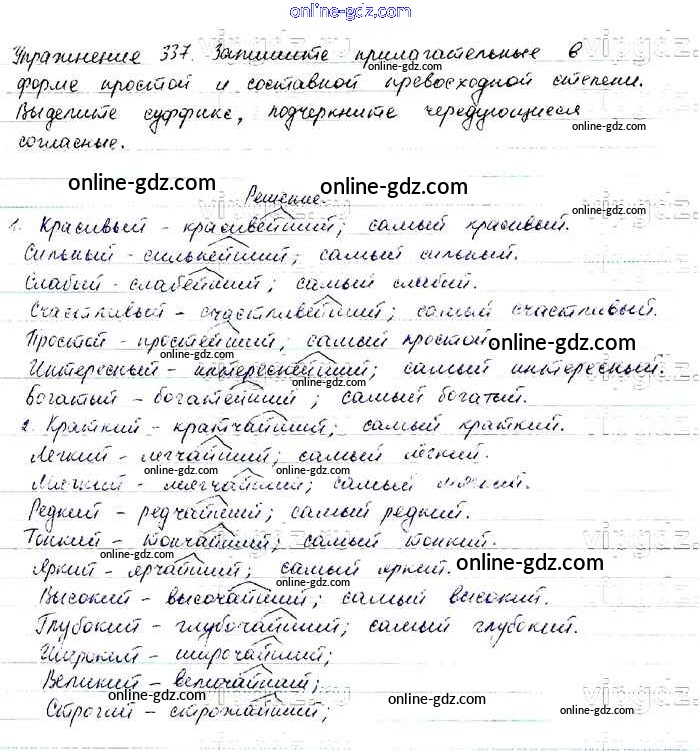 online-gdz.com
Упражнение 337. Запишите прилагательные в
форме простой и составной превосходной степени.
Выделите суффикс, подчеркните чередующиеся
согласные.
Решение.
1. Красивый - красивейший; самый красивый.
Сильный - сильнейший; самый сильный.
Слабый - слабейший; самый слабый.
Счастливый - счастливейший; самый счастливый.
Простой - простейший; самый простой
Интересный - интереснейший; самый интересный.
Богатый - богатейший; самый богатый.
2. Краткий - кратчайший; самый краткий.
Легкий - легчайший; самый лёгкий.
Мягкий - мягчайший; самый мягкий.
Редкий - редчайший; самый редкий.
Тонкий - тончайший; самый тонкий.
Яркий - ярчайший; самый яркий.
Высокий - высочайший; самый высокий.
Глубокий - глубочайший; самый глубокий.
Широкий - широчайший;
Великий - величайший;
Строгий - строжайший;